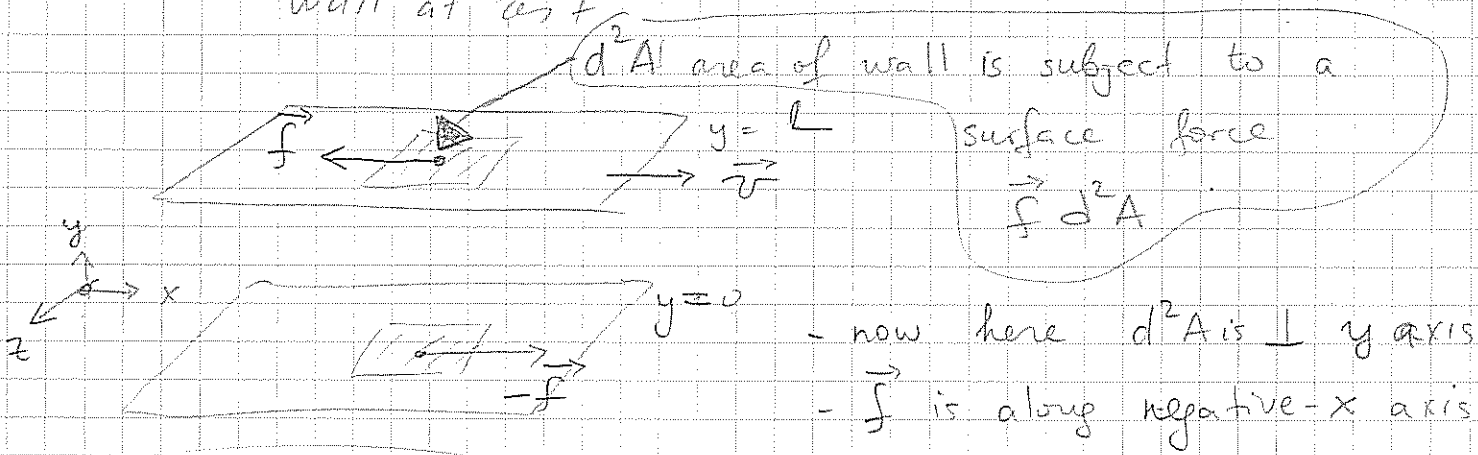 wall at rest
d²A area of wall is subject to a
surface force
f⃗ d²A
y = L
f⃗
v⃗
y
x
z
y=0
-f⃗
- now here d²A is ⊥ y axis
- f⃗ is along negative-x axis